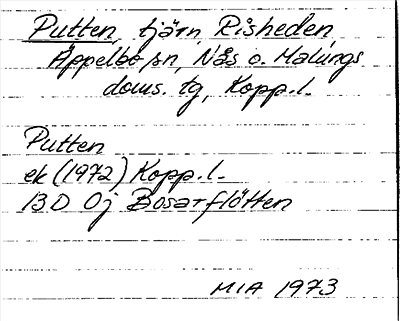 Putten, tjärn Risheden
Äppelbo sn, Nås o. Malungs
doms. tg, Kopp.l.
Putten
ek (1972) Kopp.l.
13D 0j Bosarflötten
MIA 1973